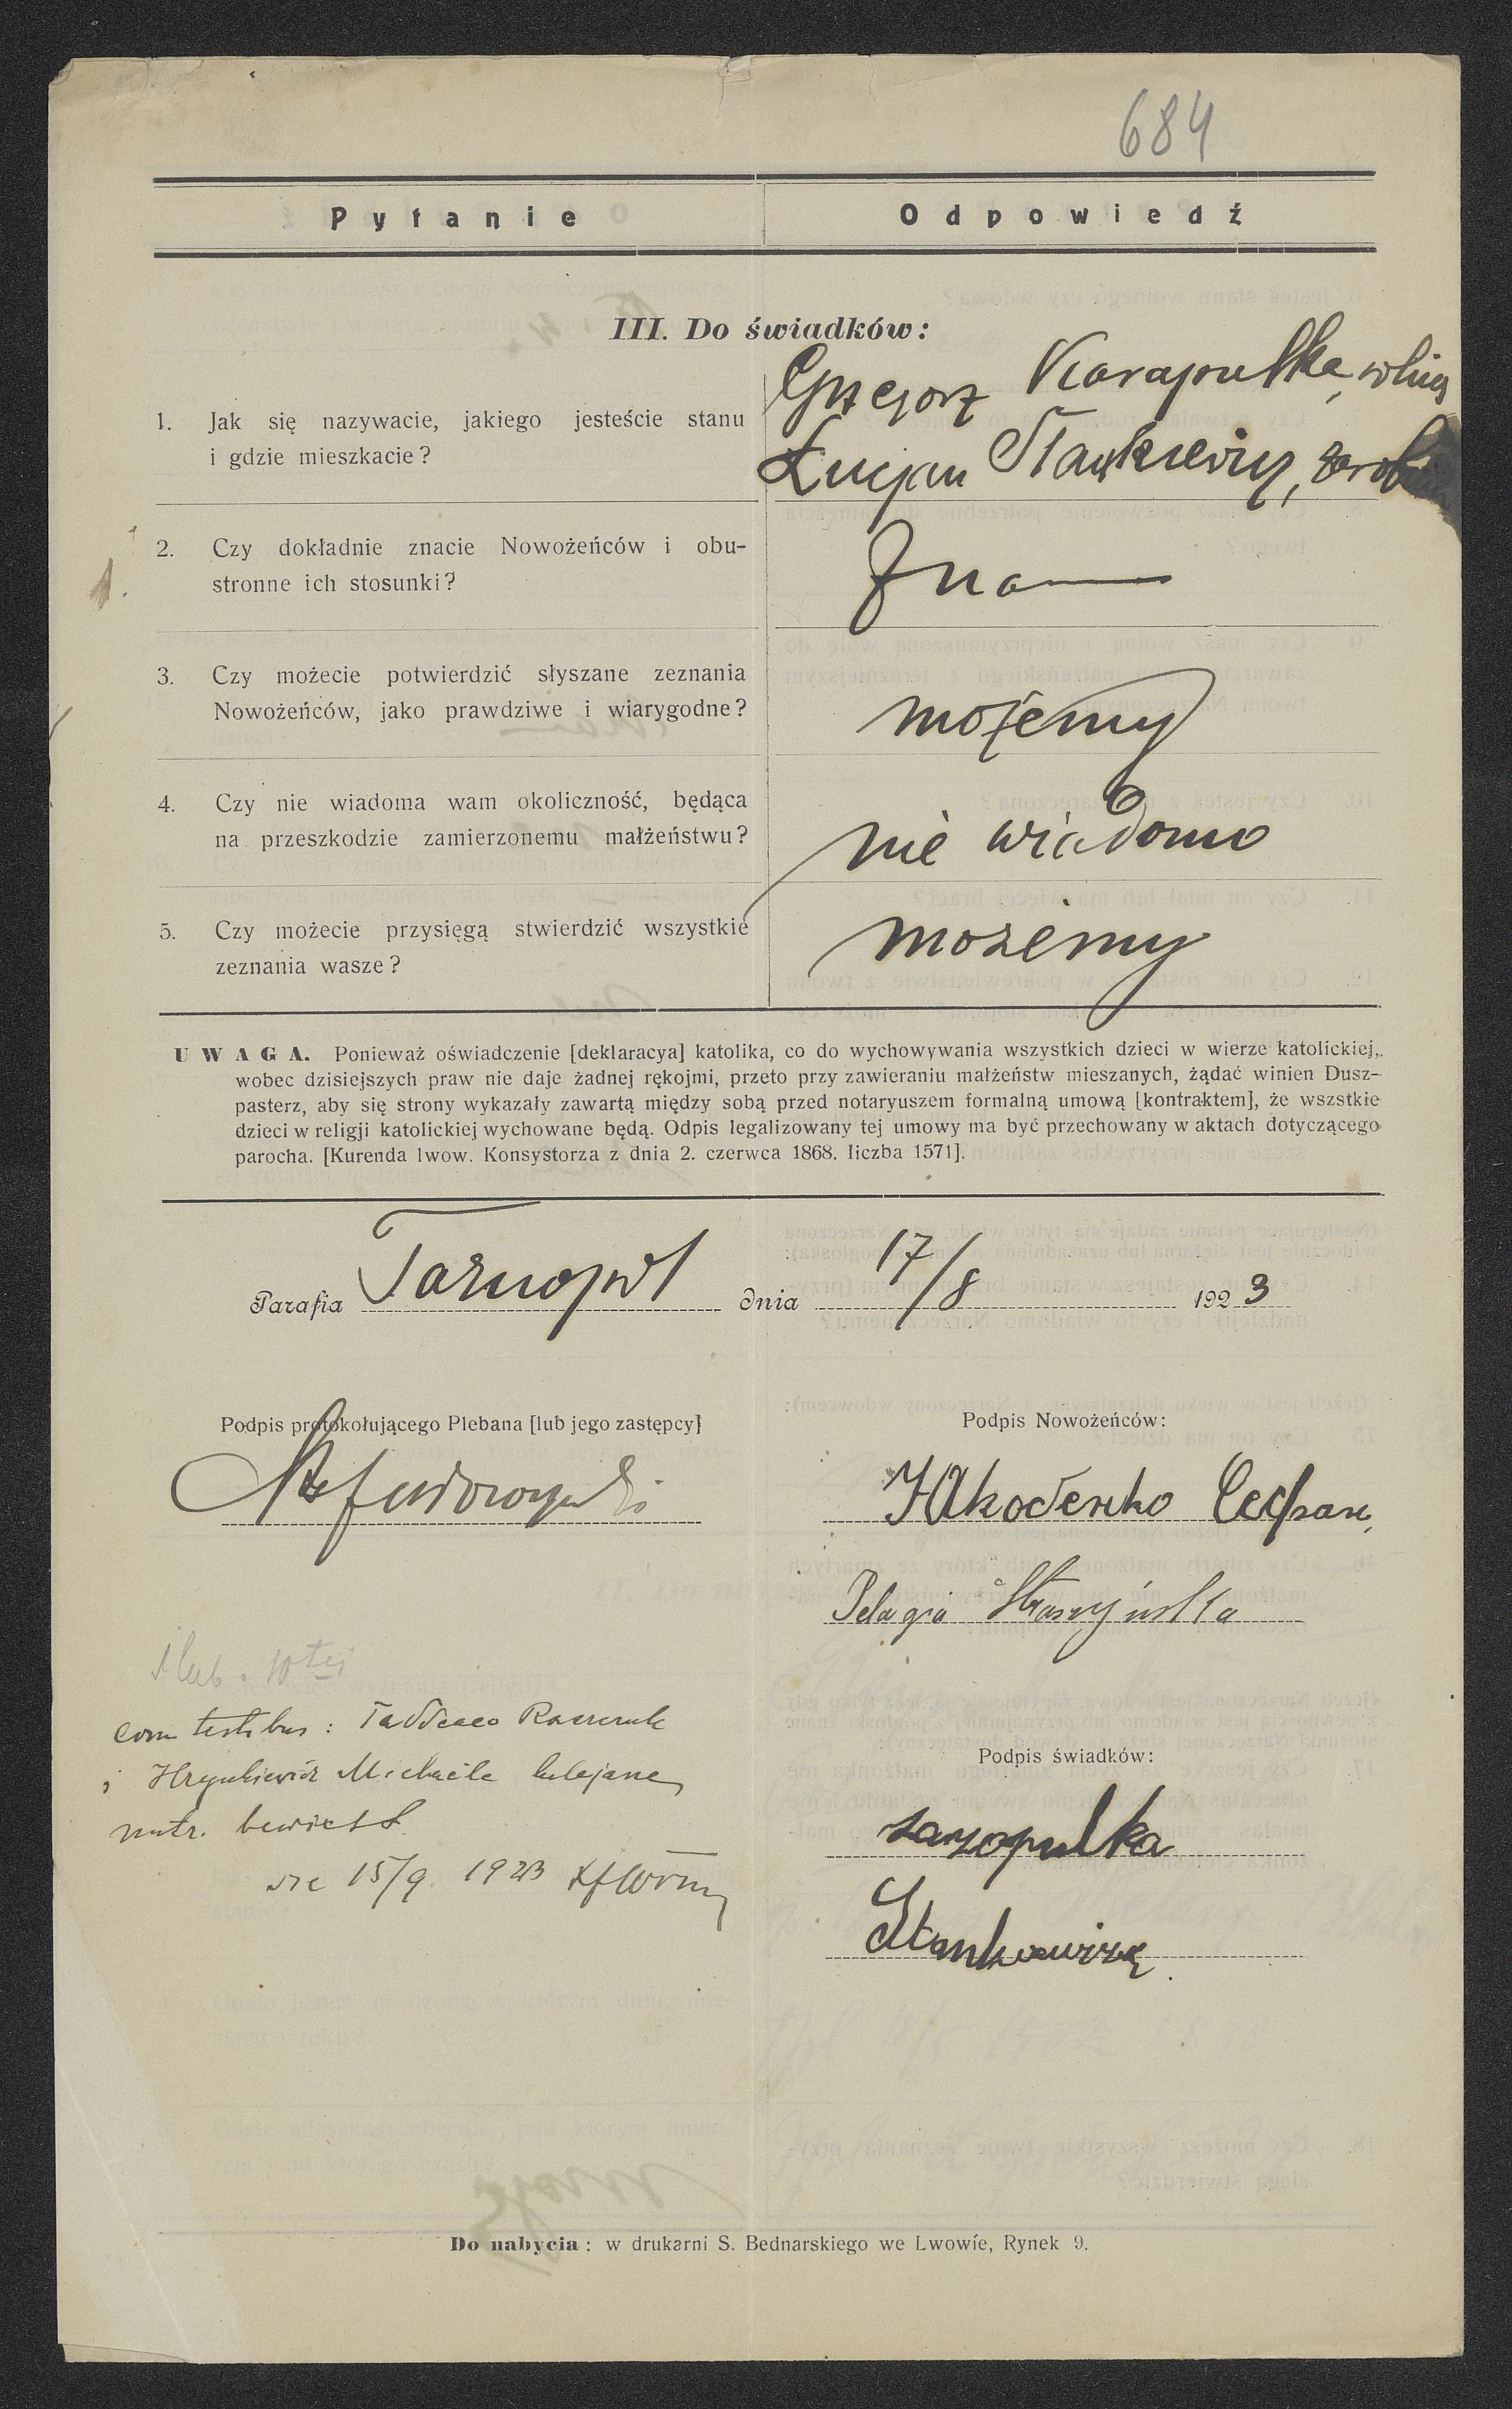 684
Pytanie Odpowiedź
III. Do świadków:
1. Jak się nazywacie, jakiego jesteście stanu
i gdzie mieszkacie?
Grzegorz Karapulka,
Łucjan Stankiewicz,
2. Czy dokładnie znacie Nowożeńców i obu-
stronne ich stosunki?
Zna
3. Czy możecie potwierdzić słyszane zeznania
Nowożeńców, jako prawdziwe i wiarygodne?
możemy
4. Czy nie wiadoma wam okoliczność, będąca
na przeszkodzie zamierzonemu małżeństwu?
nie wiadomo
5. Czy możecie przysięgą stwierdzić wszystkie
zeznania wasze?
możemy
UWAGA. Ponieważ oświadczenie [deklaracya] katolika, co do wychowywania wszystkich dzieci w wierze katolickiej,
wobec dzisiejszych praw nie daje żadnej rękojmi, przeto przy zawieraniu małżeństw mieszanych, żądać winien Dusz-
pasterz, aby się strony wykazały zawartą między sobą przed notaryuszem formalną umową [kontraktem], że wszstkie
dzieci w religji katolickiej wychowane będą. Odpis legalizowany tej umowy ma być przechowany w aktach dotyczącego
parocha. [Kurenda lwow. Konsystorza z dnia 2. czerwca 1868. liczba 1571].
Parafia Tarnopol dnia 17/8 1923
Podpis protokołującego Plebana [lub jego zastępcy]
Podpis Nowożeńców:
Pelagia
ślub 10tej
cum testibus: Taddeaeo
i Hrynkiewicz Michaele
15/9 1923
Podpis świadków:
karapulka
Stankiewicz
Do nabycia: w drukarni S. Bednarskiego we Lwowie, Rynek 9.